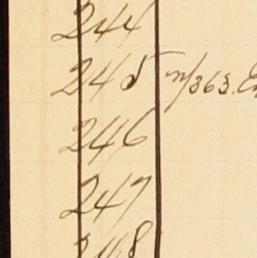 244
245 n/363.
246
247
248